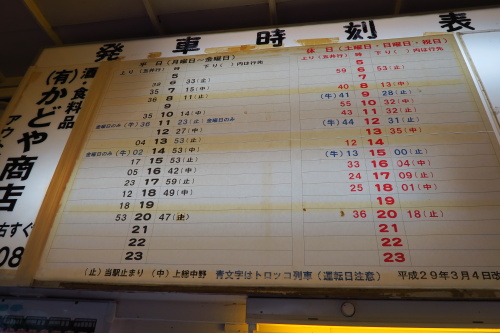 発車時刻表
(有)かどや商店
酒・食料品
平日（月曜日〜金曜日）
上り（五井行） 時 下り（ ）内は行先
5
6 33（止）
35 7 15（中）
36 8 11（止）
9
35 10 14（中）
金曜日のみ（牛）36 11 23（止）金曜日のみ
12 27（中）
04 13 53（止）
金曜日のみ（牛）02 14 53（中）
17 15 53（止）
05 16 42（中）
23 17 59（止）
12 18 49（中）
18 19
53 20 47（止）
21
22
23
休日（土曜日・日曜日・祝日）
上り（五井行） 時 下り（ ）内は行先
5
59 6 53（止）
7
40 8 13（中）
（牛）41 9 28（止）
55 10 32（中）
43 11 32（止）
（牛）44 12 31（止）
13 35（中）
12 14
（牛）13 15 00（止）
33 16 04（中）
24 17 09（止）
25 18 01（中）
19
36 20 18（止）
21
22
23
（止）当駅止まり （中）上総中野 青文字はトロッコ列車（運転日注意） 平成29年3月4日改
右すぐ
08